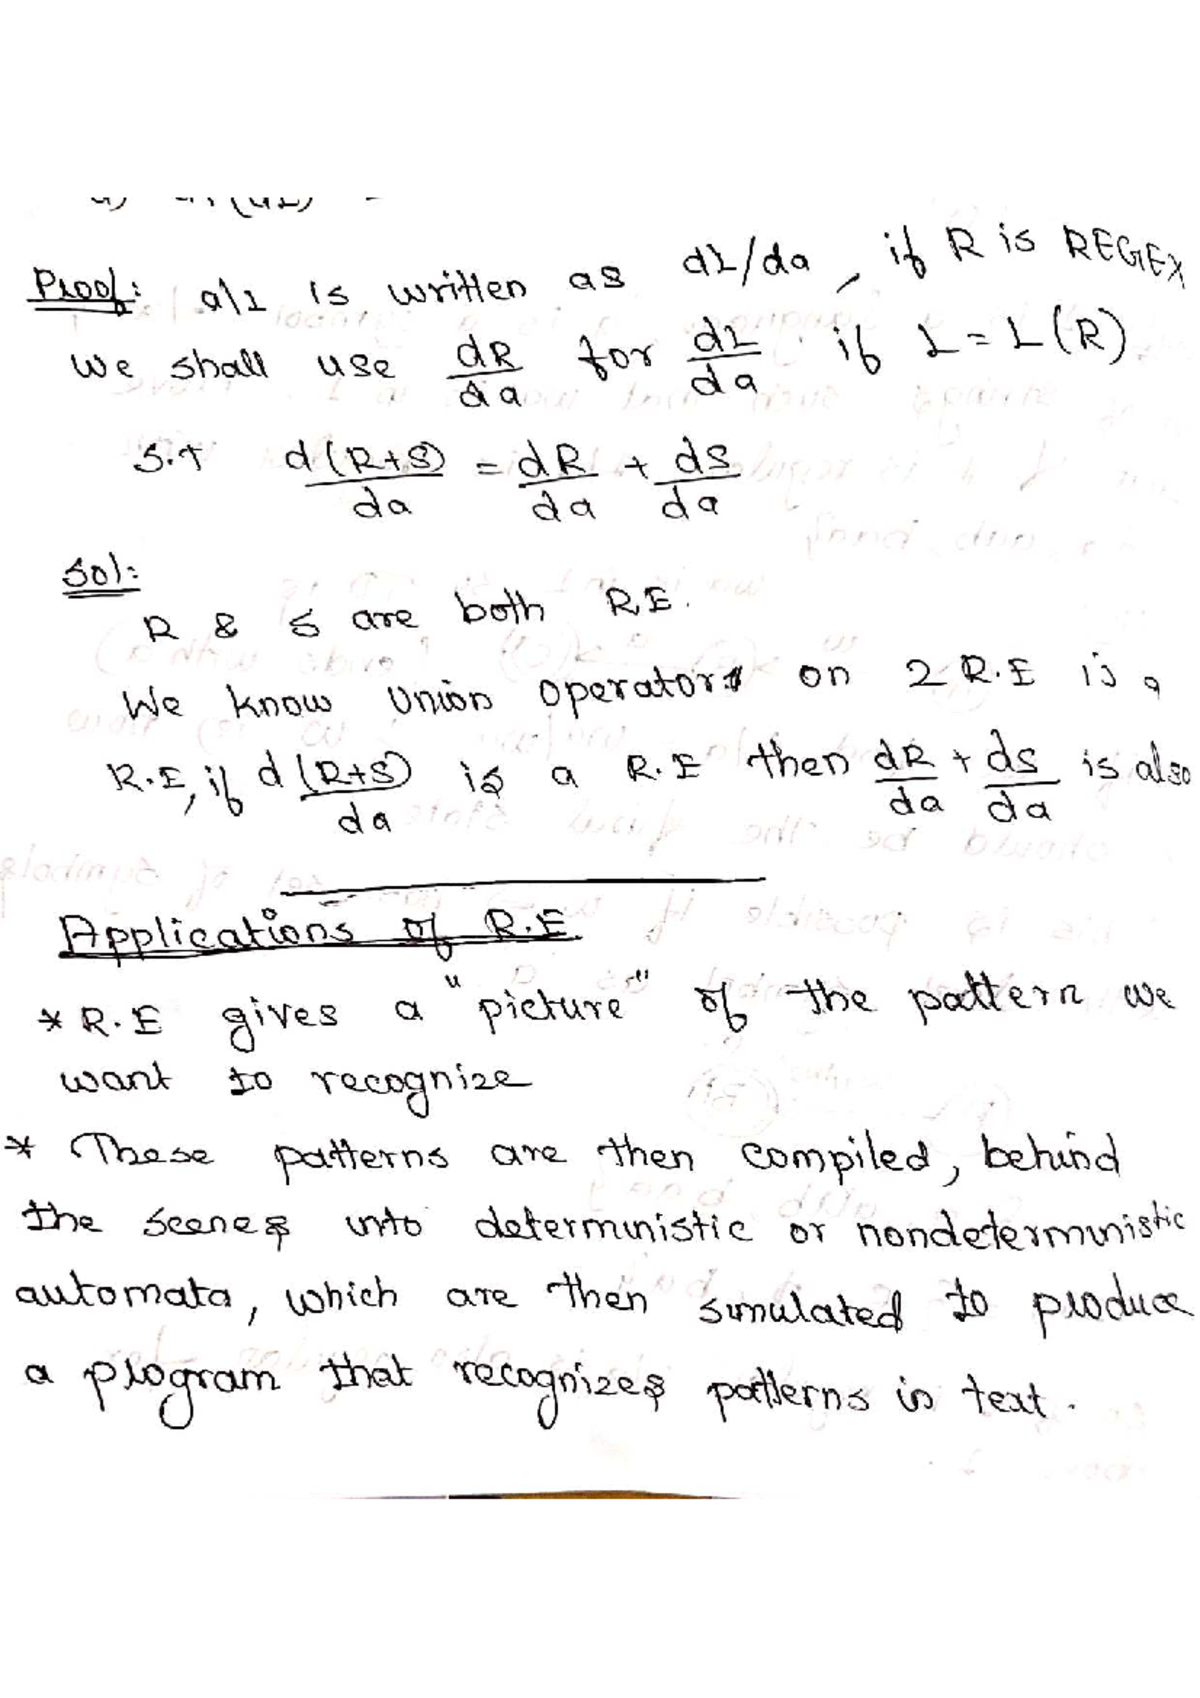 Proof: a\L is written as dL/da, if R is REGEX
we shall use dR/da for dL/da if L = L(R)
S.T d(R+S)/da = dR/da + dS/da
Sol:
R & S are both RE.
We know Union operators on 2 R.E is a
R.E, if d(R+S)/da is a R.E then dR/da + dS/da is also
Applications of R.E
* R.E gives a "picture" of the pattern we
want to recognize
* These patterns are then compiled, behind
the scenes into deterministic or nondeterministic
automata, which are then simulated to produce
a program that recognizes patterns in text.